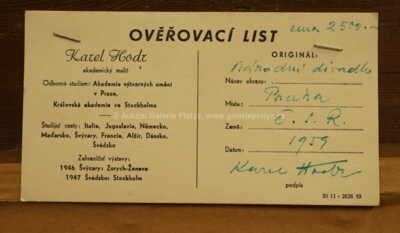 OVĚŘOVACÍ LIST
cena 2500
Karel Hodr
akademický malíř
Odborná studia: Akademie výtvarných umění
v Praze.
Královská akademie ve Stockholmu
Studijní cesty: Italie, Jugoslavie, Německo,
Maďarsko, Švýcary, Francie, Alžír, Dánsko,
Švédsko
Zahraniční výstavy:
1946 Švýcary: Zurych-Ženeva
1947 Švédsko: Stockholm
ORIGINÁL:
Národní divadlo
Název obrazu:
Praha
Místo:
Č. S. R.
Země:
1959
Datum:
Karel Hodr
podpis